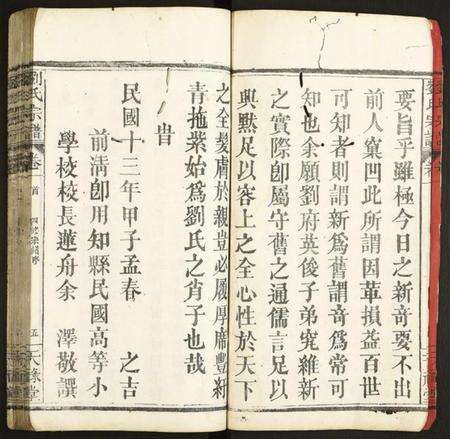 要旨乎雖極今日之新奇要不出
前人窠凹此所謂因革損益百世
可知者則謂新爲舊謂奇爲常可
知也余願劉府英俊子弟究維新
之實際卽屬守舊之通儒言足以
興黙足以容上之全心性於天下
之全髮膚於親豈必履厚席豐紆
青拖紫始爲劉氏之肖子也哉
旹
民國十三年甲子孟春 之吉
前淸卽用知縣民國高等小
學校校長蓮舟余 澤敬譔
劉氏宗譜
卷 首
五
天祿堂